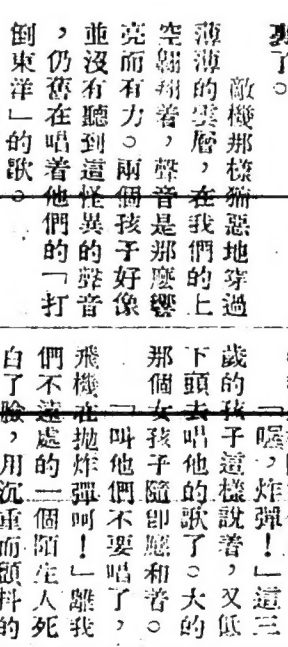 了。
敵機那樣猙惡地穿過
薄薄的雲層，在我們的上
空翱翔着，聲音是那麼響
亮而有力。兩個孩子好像
並沒有聽到這怪異的聲音
，仍舊在唱着他們的「打
倒東洋」的歌。
「喔，炸彈！」這三
歲的孩子這樣說着，又低
下頭去唱他的歌了。大的
那個女孩子隨卽應和着。
「叫他們不要唱了，
飛機在拋炸彈呵！」離我
們不遠處的一個陌生人死
白了臉，用沉重而顫抖的